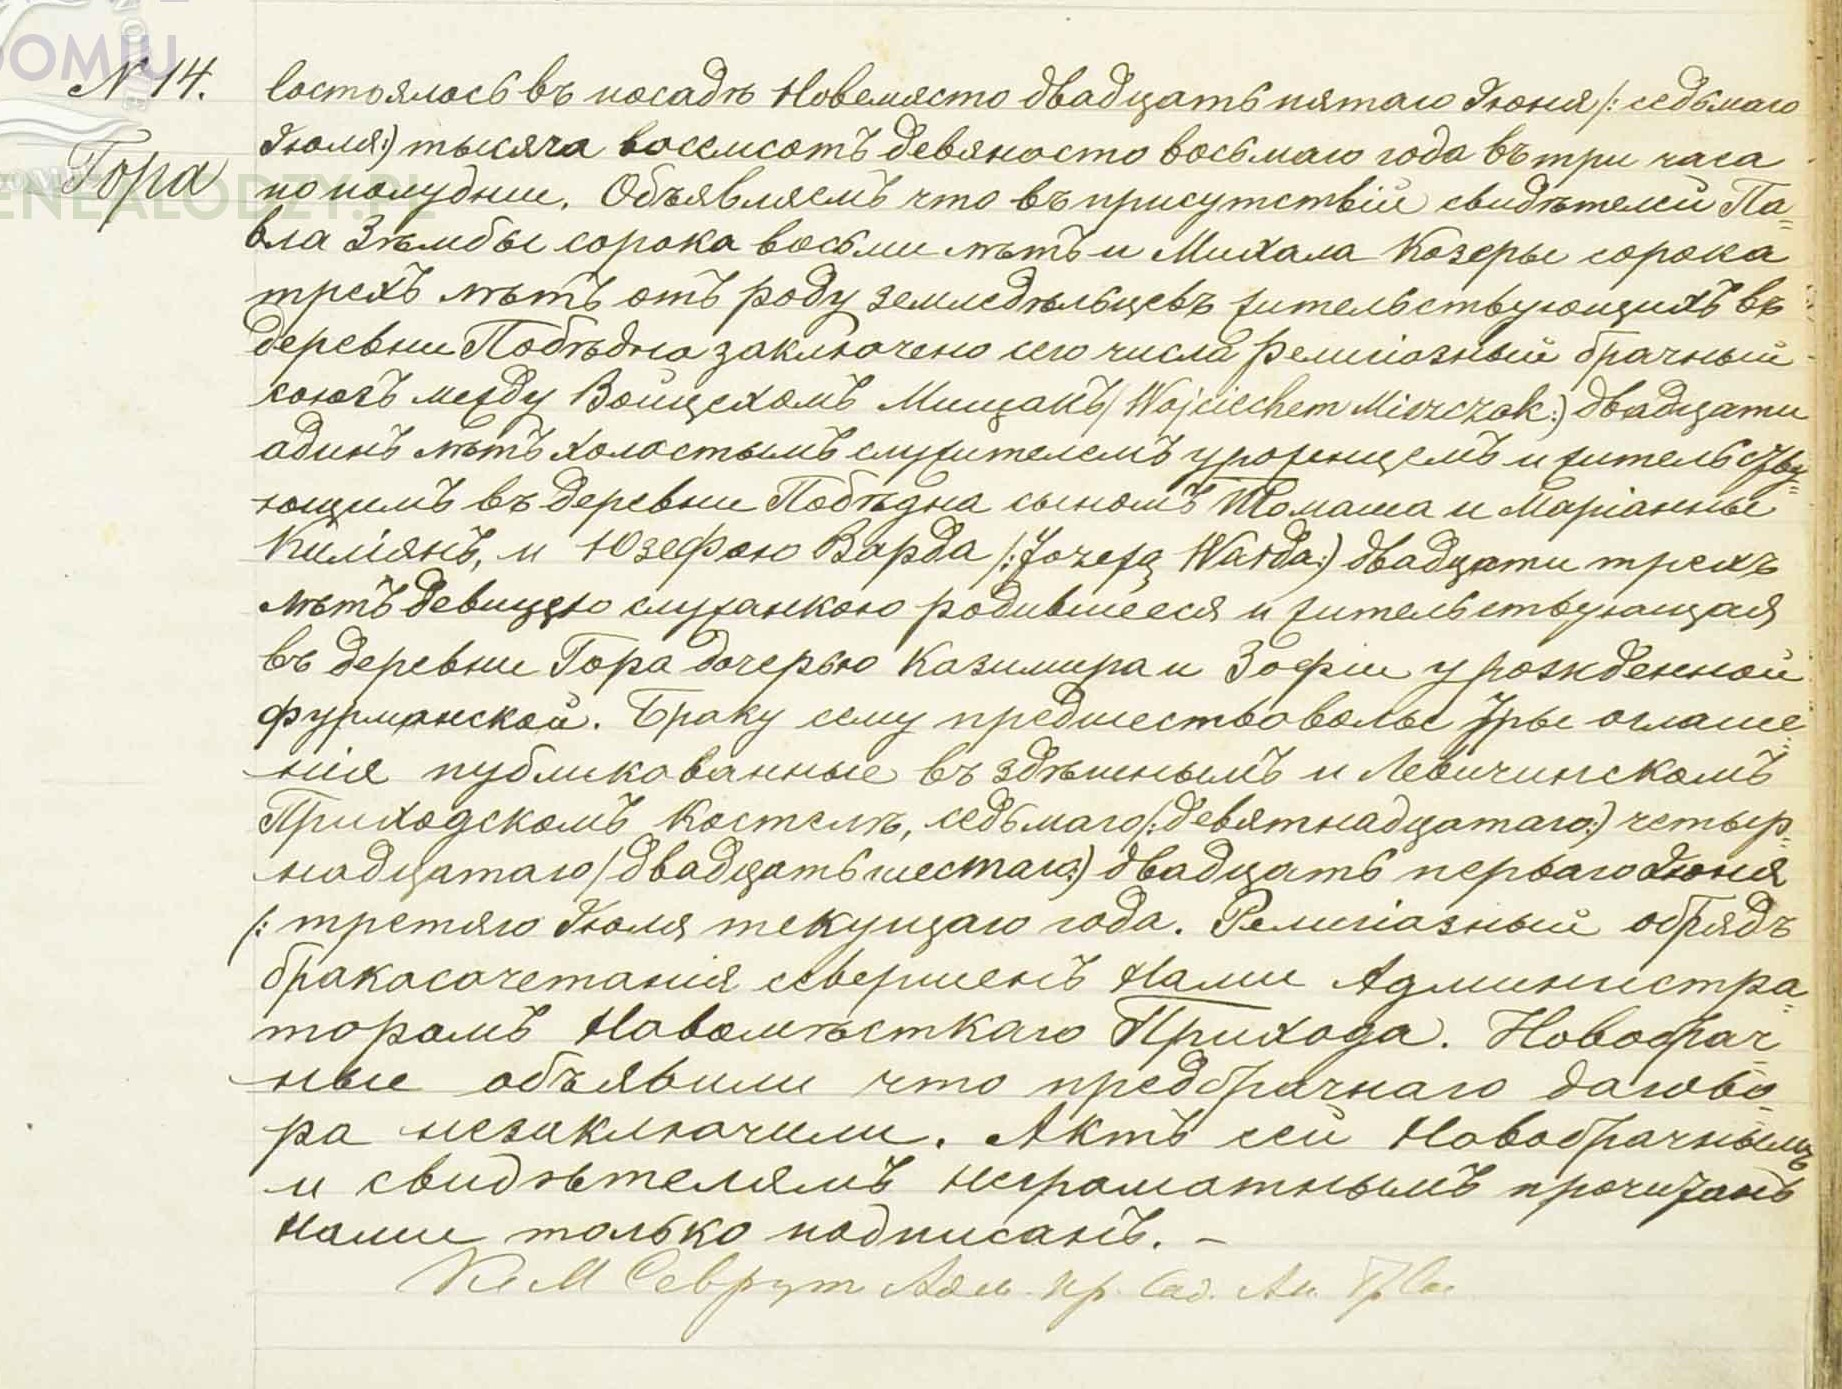 N 14.
Гора
Состоялось въ посадѣ Новемясто двадцать пятаго Іюня /: седьмаго
Іюля:) тысяча восемсотъ девяносто восьмаго года въ три часа
по полудни. Объявляемъ что въ присутствіи свидѣтелей Па=
вла Зѣмбы сорока восьми лѣтъ и Михала Козеры сорока
трехъ лѣтъ отъ роду земледѣльцевъ жительствующихъ въ
деревни Побѣдна заключено сего числа религіозный брачный
союзъ между Войцехомъ Мищакъ/ Wojciechem Miszczak:) двадцати
адинъ лѣтъ холостымъ служителемъ уроженцемъ и жительству=
ющимъ въ деревни Побѣдна сыномъ Томаша и Маріанны
Киліянъ, и Юзефою Варда /: Józefą Warda:) двадцати трехъ
лѣтъ девицею служанкою родившееся и жительствующая
въ деревни Гора дочерью Казимира и Зофіи урожденной
Фурманской. Браку сему предшествовалы тры оглаше=
нія публикованные въ здѣшнымъ и Левичинскомъ
Приходскомъ Костелѣ, седьмаго/: девятнадцатаго:) четыр=
надцатаго/ двадцать шестаго:) двадцать перваго Іюня
/: третяго Іюля текущаго года. Религіазный обрядъ
бракасочетанія совершенъ Нами Администра=
торомъ Новомѣсткаго Прихода. Новобрач=
ные объявили что предбрачнаго догово=
ра незаключили. Актъ сей Новобрачнымъ
и свидѣтелямъ неграматнымъ прочитанъ
Нами только подписанъ. –
Кс М Севрут Адм. пр.